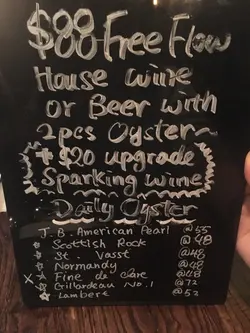 $88 Free Flow
House wine
or Beer with
2pcs Oyster
+ $20 upgrade
Sparking wine
Daily Oyster
J.B. American Pearl @55
Scottish Rock @48
St. Vasst @48
Normandy @48
X Fine de clare @48
Gillardeau No.1 @72
Lambert @52